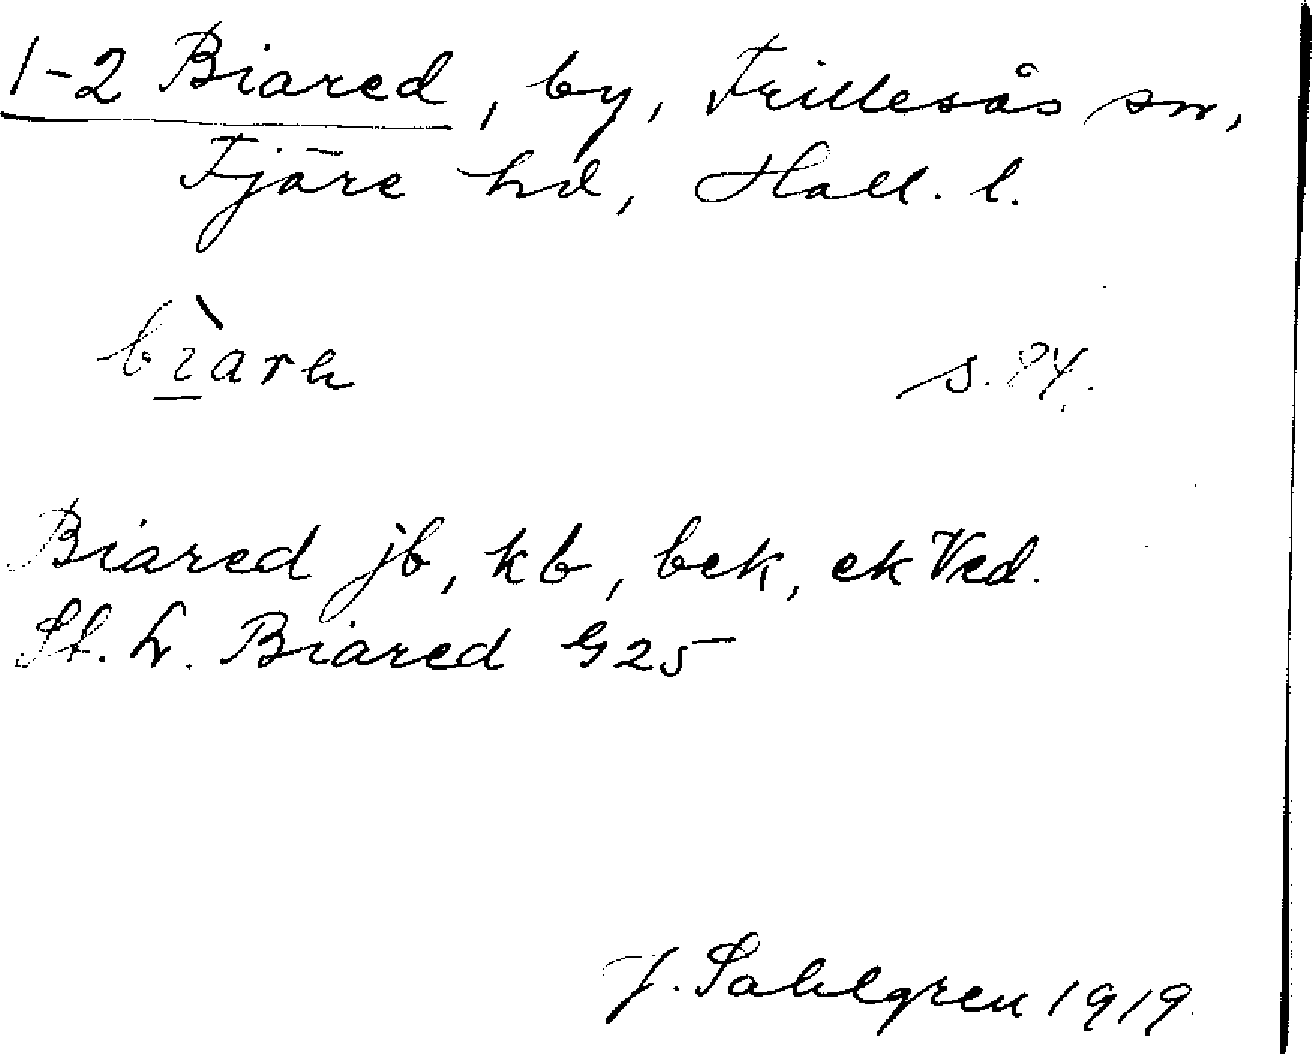 1-2 Biared, by, Frillesås sn,
Fjäre hd, Hall. l.
s. 84.
Biared jb, kb, bek, ek Ved.
St. L. Biared G25
J. Sahlgren 1919